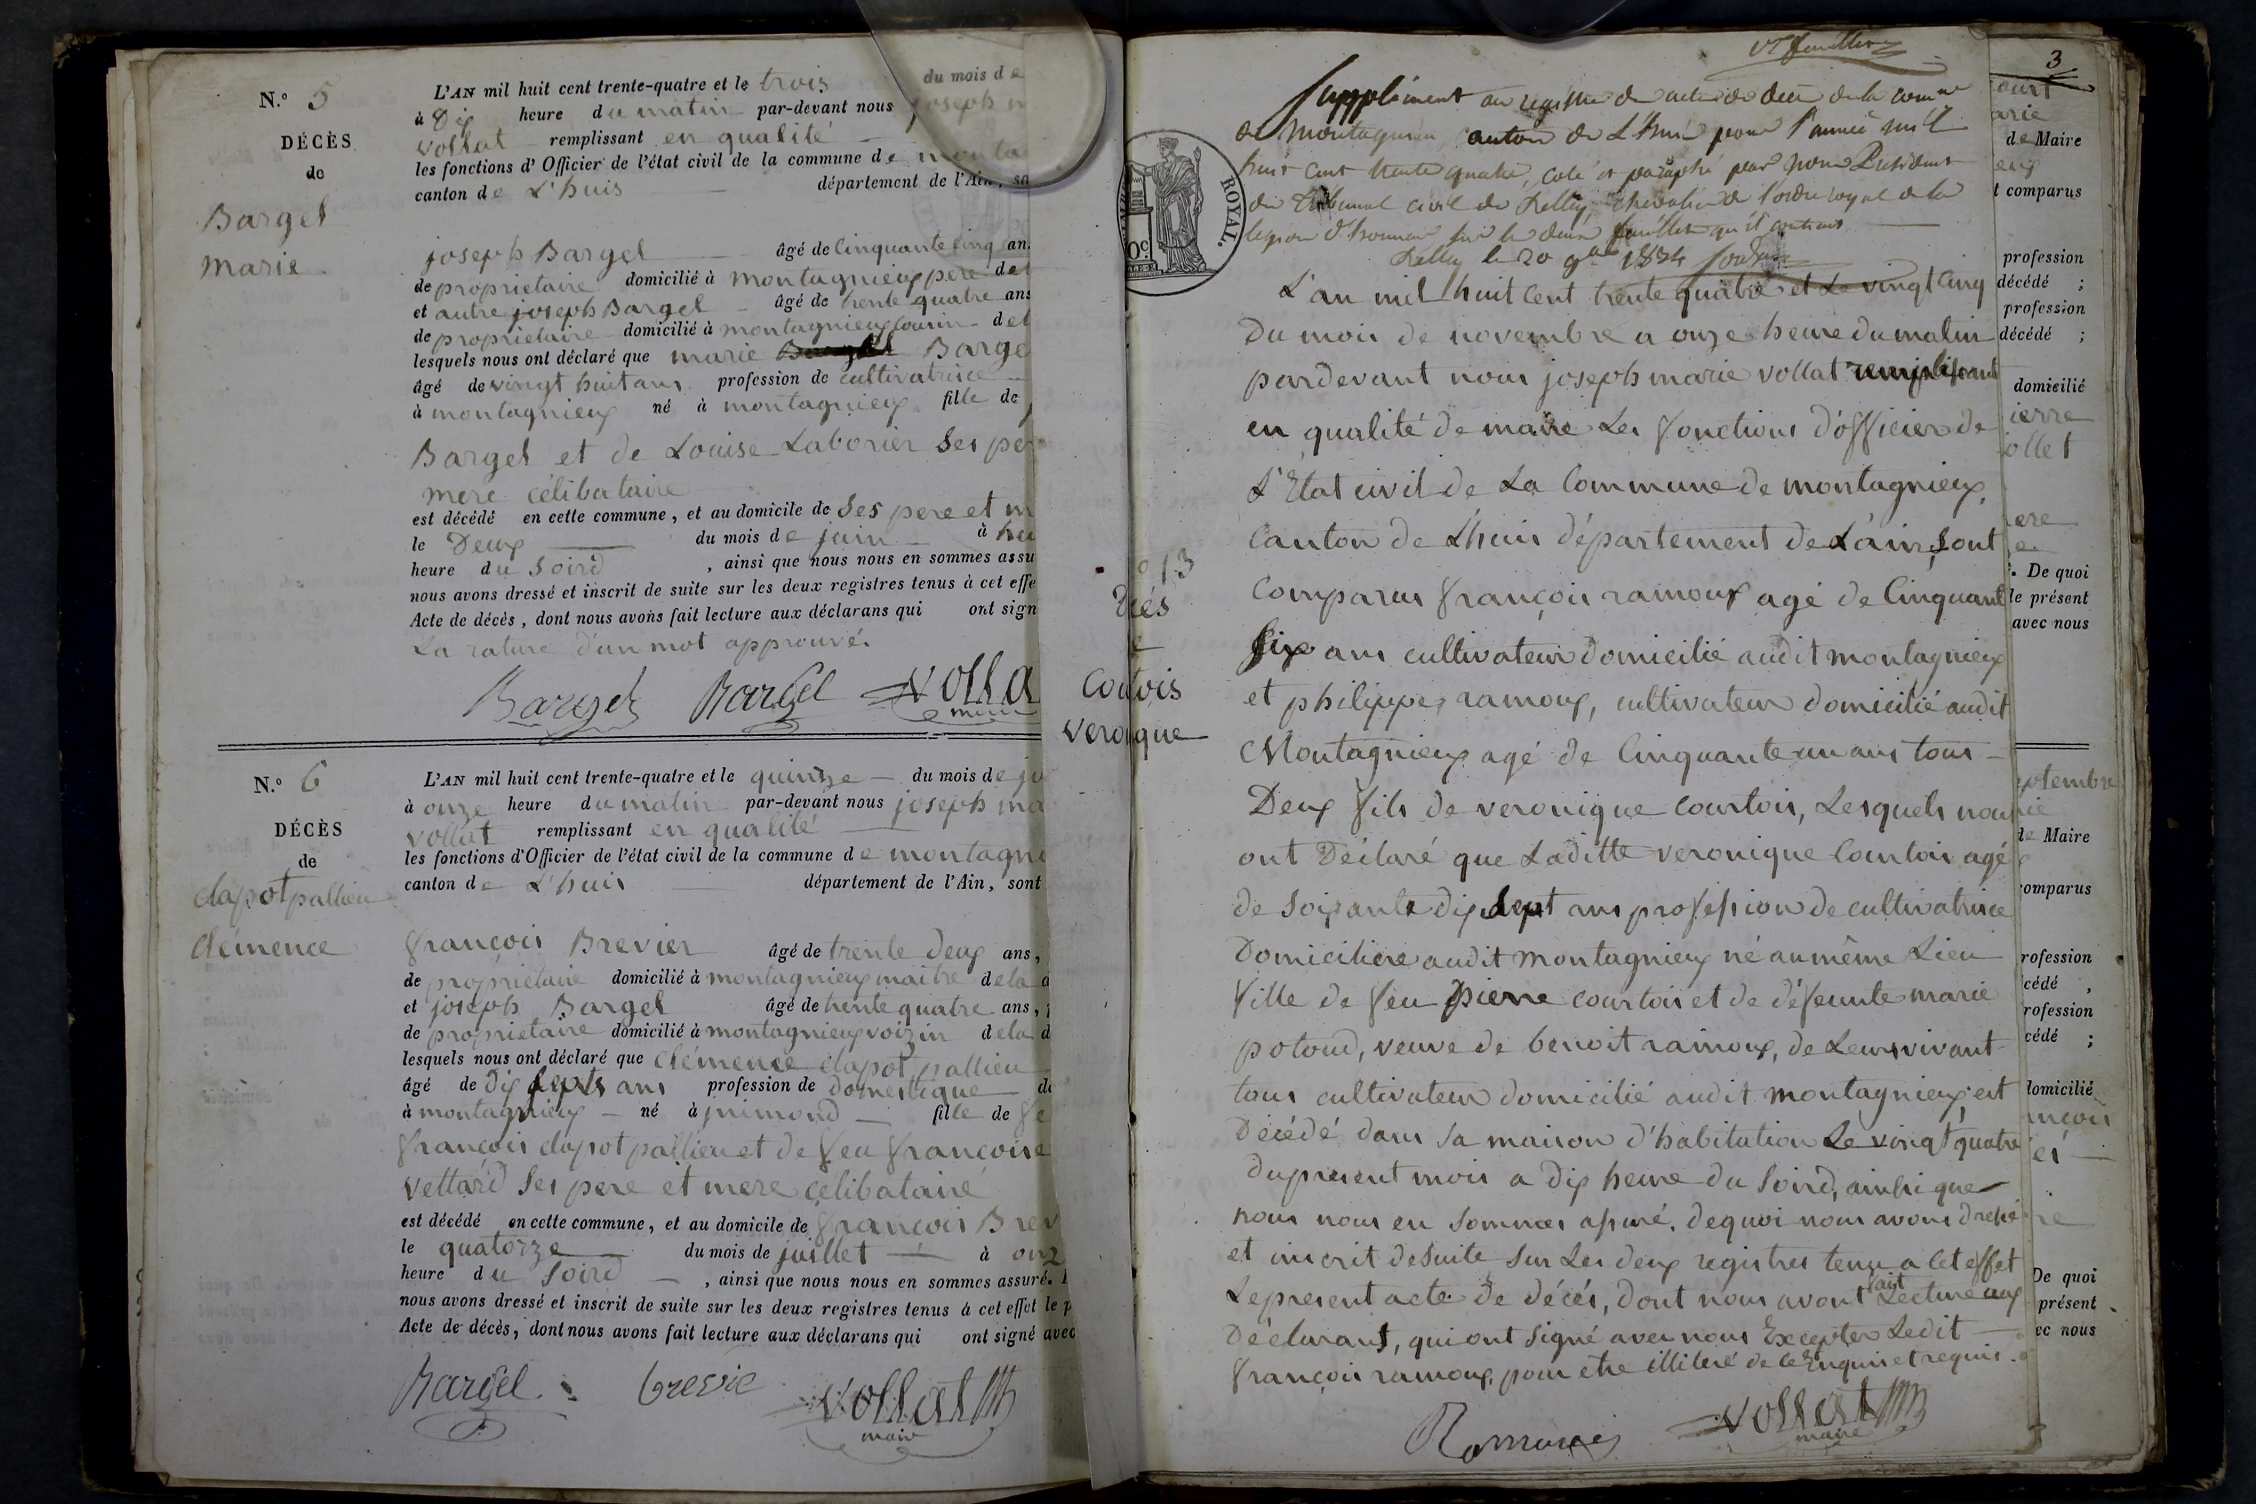 N.º 5
DÉCÈS
de
Bargel
Marie
L'AN mil huit cent trente-quatre et le trois du mois de
à Dix heure du matin par-devant nous joseph m
vollat remplissant en qualité
les fonctions d'Officier de l'état civil de la commune de monta
canton de L'huis département de l'Ain, so
joseph Bargel âgé de Cinquante Cinq an
de proprietaire domicilié à montagnieux pere de
et autre joseph Bargel âgé de trente quatre ans
de proprietaire domicilié à montagnieux cousin de
lesquels nous ont déclaré que marie Barge
âgé de vingt huit ans profession de cultivatrice
à montagnieux né à montagnieux fille de
Bargel et de Louise Laborier Ses per
mere celibataire
est décédé en cette commune, et au domicile de Ses pere et m
le Deux du mois de juin à
heure du Soird , ainsi que nous nous en sommes assu
nous avons dressé et inscrit de suite sur les deux registres tenus à cet effe
Acte de décès, dont nous avons fait lecture aux déclarans qui ont sign
La rature d'un mot approuvé.
Bargel Bargel Volla
maire
N.º 6
DÉCÈS
de
clapot pallieu
Clémence
L'AN mil huit cent trente-quatre et le quinze du mois de ju
à onze heure du matin par-devant nous joseph ma
vollat remplissant en qualité
les fonctions d'Officier de l'état civil de la commune de montagni
canton de L'huis département de l'Ain, sont
françois Brevier âgé de trente deux ans,
de proprietaire domicilié à montagnieux maitre de la d
et joseph Bargel âgé de trente quatre ans,
de proprietaire domicilié à montagnieux voizin de la d
lesquels nous ont déclaré que Clémence clapot pallieu
âgé de Dix Septs ans profession de domestique d
à montagnieux né à fille de fe
françois clapot pallieu et de feu françoise
vettard Ses pere et mere celibatairé
est décédé en cette commune, et au domicile de françois Brev
le quatorze du mois de juillet à onz
heure du Soird , ainsi que nous nous en sommes assuré.
nous avons dressé et inscrit de suite sur les deux registres tenus à cet effet le p
Acte de décès, dont nous avons fait lecture aux déclarans qui ont signé avec
Bargel brevie Vollat
maire
º 13
Coutois
veronique
ROYAL.
Supplément au registre de actes de décès de la commune
de Montagnieu canton de L'huis pour l'année mil
huit cent trente quatre, coté et paraphé par nous President
du Tribunal civil de Belley, chevalier de l'ordre royal de la
legion d'honneur sur les deux feuillets qu'il contient
Belley le 20 9bre 1834
L'an mil huit Cent trente quatre et Le vingt Cinq
Du mois de novembre a onze heure du matin
pardevant nous joseph marie vollat remplissant
en qualité de maire Les fonctions d'officier de
L'Etat civil de La Commune de montagnieux,
Canton de Lhuis département de L'ain, Sont
Comparus françois ramoux agé de Cinquant
Six ans cultivateur domicilié audit montagnieux
et philippe ramoux, cultivateur domicilié audit
Montagnieux agé de Cinquante un ans tous
Deux fils de veronique courtois, Lesquels nous
ont Déclaré que Laditte veronique Courtois agé
de Soixante dix Sept ans profession de cultivatrice
Domiciliere audit montagnieux né au même Lieu
fille de feu pierre courtois et de défeunte marie
potoud, veuve de benoit ramoux, de Leur vivant
tous cultivateur domicilié audit montagnieux est
Décédé dans Sa maison d'habitation Le vingt quatre
du present mois a dix heure du Soird, ainsi que
nous nous en Sommes assuré. dequoi nous avons dressé
et inscrit de Suite Sur Les deux registres tenu a Cet effet
Le present acte de décés, dont nous avont fait Lecture aux
Déclarans, qui ont Signé avec nous Excepter Ledit
françois ramoux, pour etre illiteré de ce Enquis et requis.
Vollat
maire
3
de Maire
t comparus
profession
décédé ;
profession
décédé ;
domicilié
ierre
ollet
ere
. De quoi
le présent
avec nous
eptembre
de Maire
comparus
rofession
cédé ,
rofession
cédé ;
domicilié
ançois
De quoi
présent
ec nous